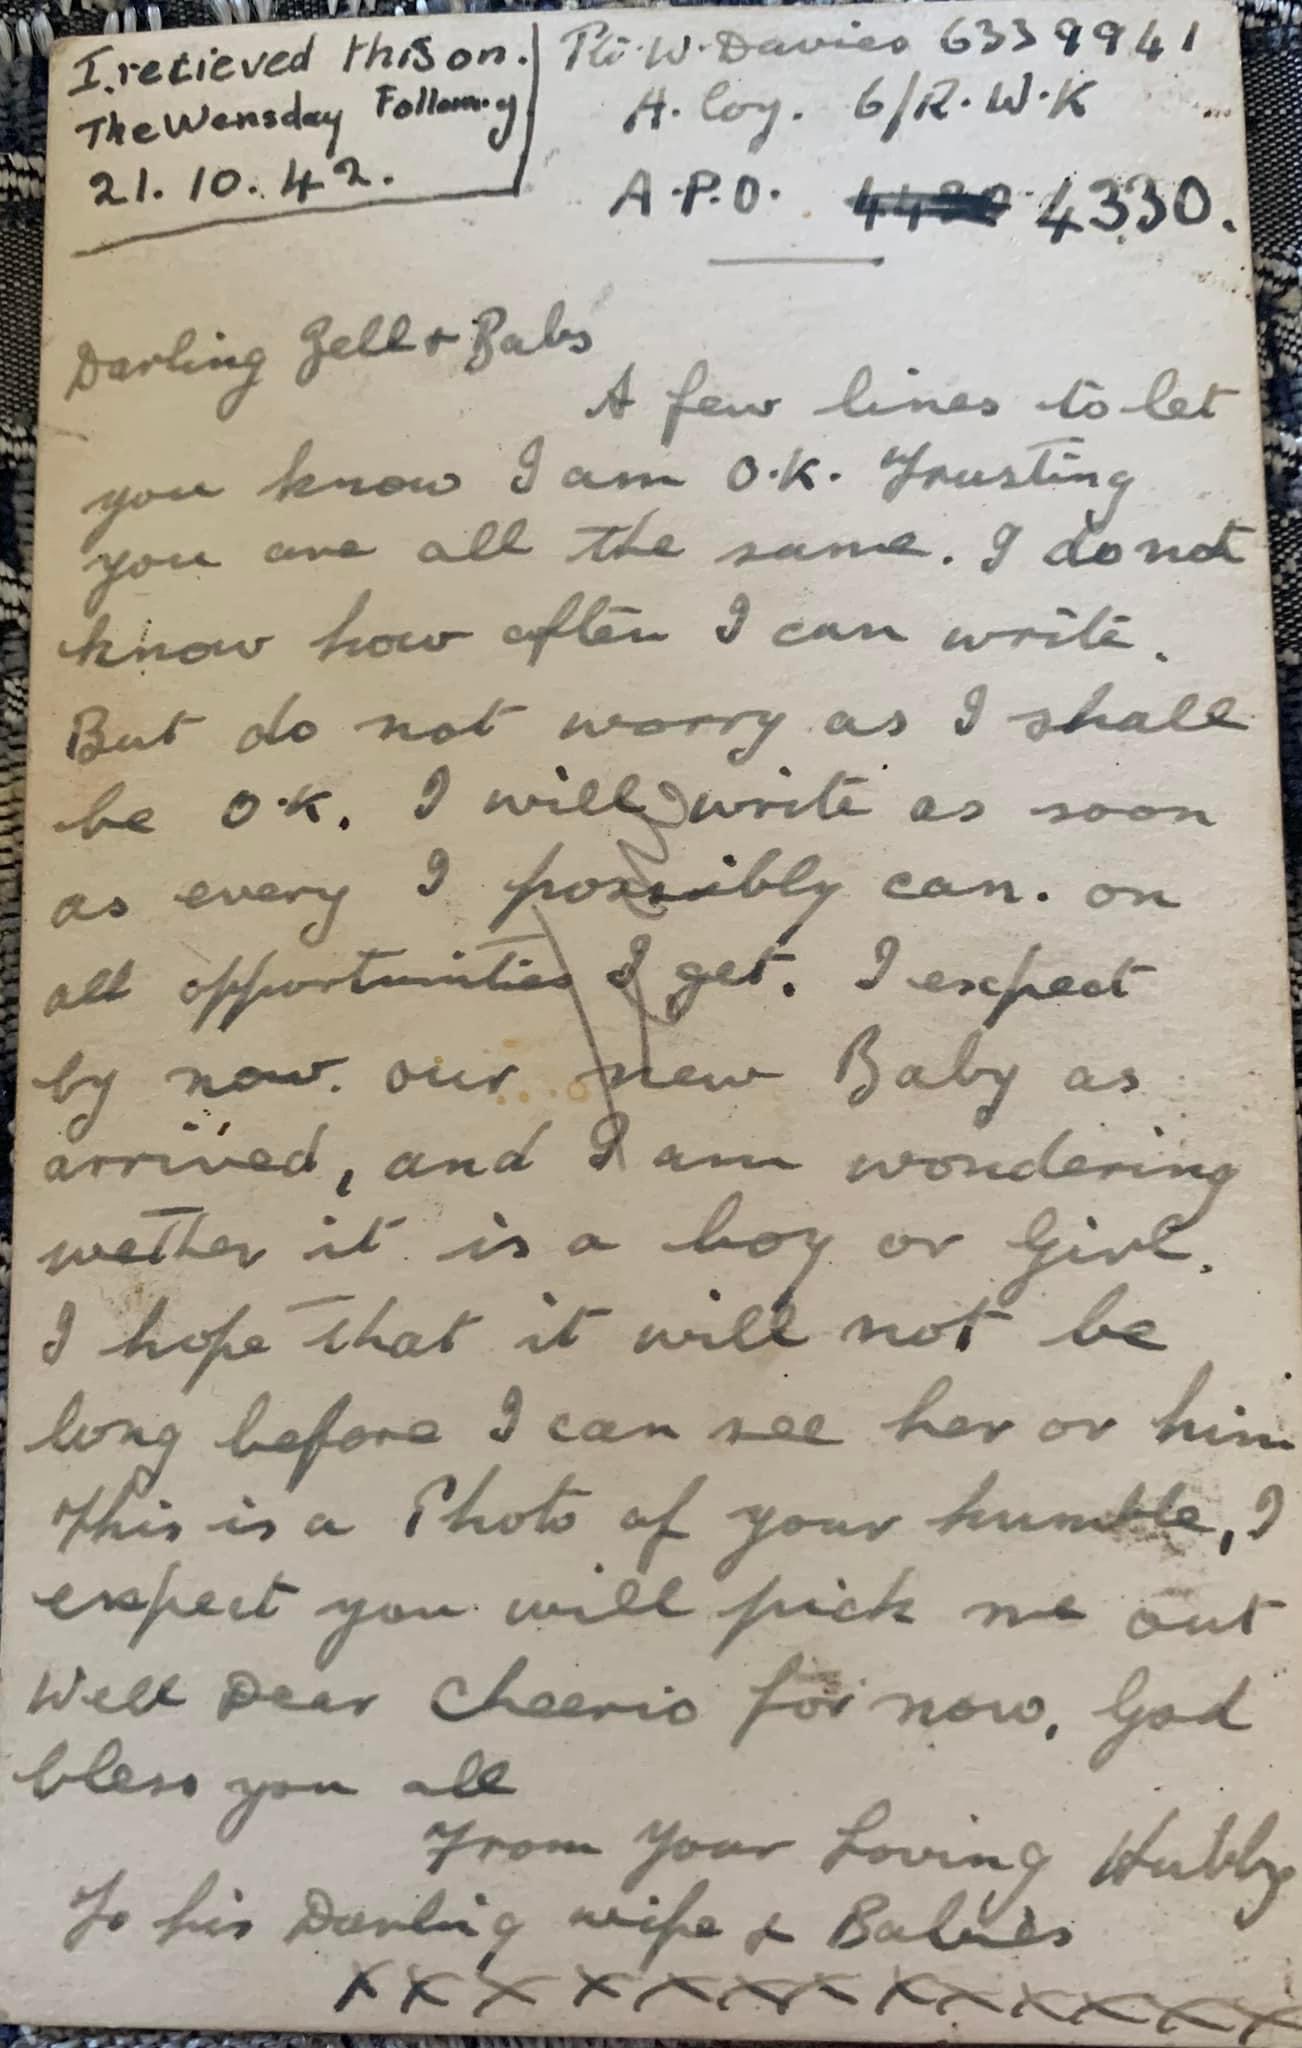 I. recieved this on.
The Wensday Following
21. 10. 42.
Pte. W. Davies 6339941
A. Coy. 6/R.W.K
A.P.O. 4330.
Darling Gell + Babs
A few lines to let
you know I am O.K. Trusting
you are all the same. I do not
know how often I can write.
But do not worry as I shall
be O.K. I will write as soon
as every I possibly can. on
all opportunities I get. I expect
by now. our new Baby as
arrived, and I am wondering
wether it is a boy or Girl.
I hope that it will not be
long before I can see her or him
This is a Photo of your humble, I
expect you will pick me out
Well Dear Cheerio for now. God
bless you all
From Your Loving Hubby
To his Darling wife & Babies
x x x x x x x x x x x x